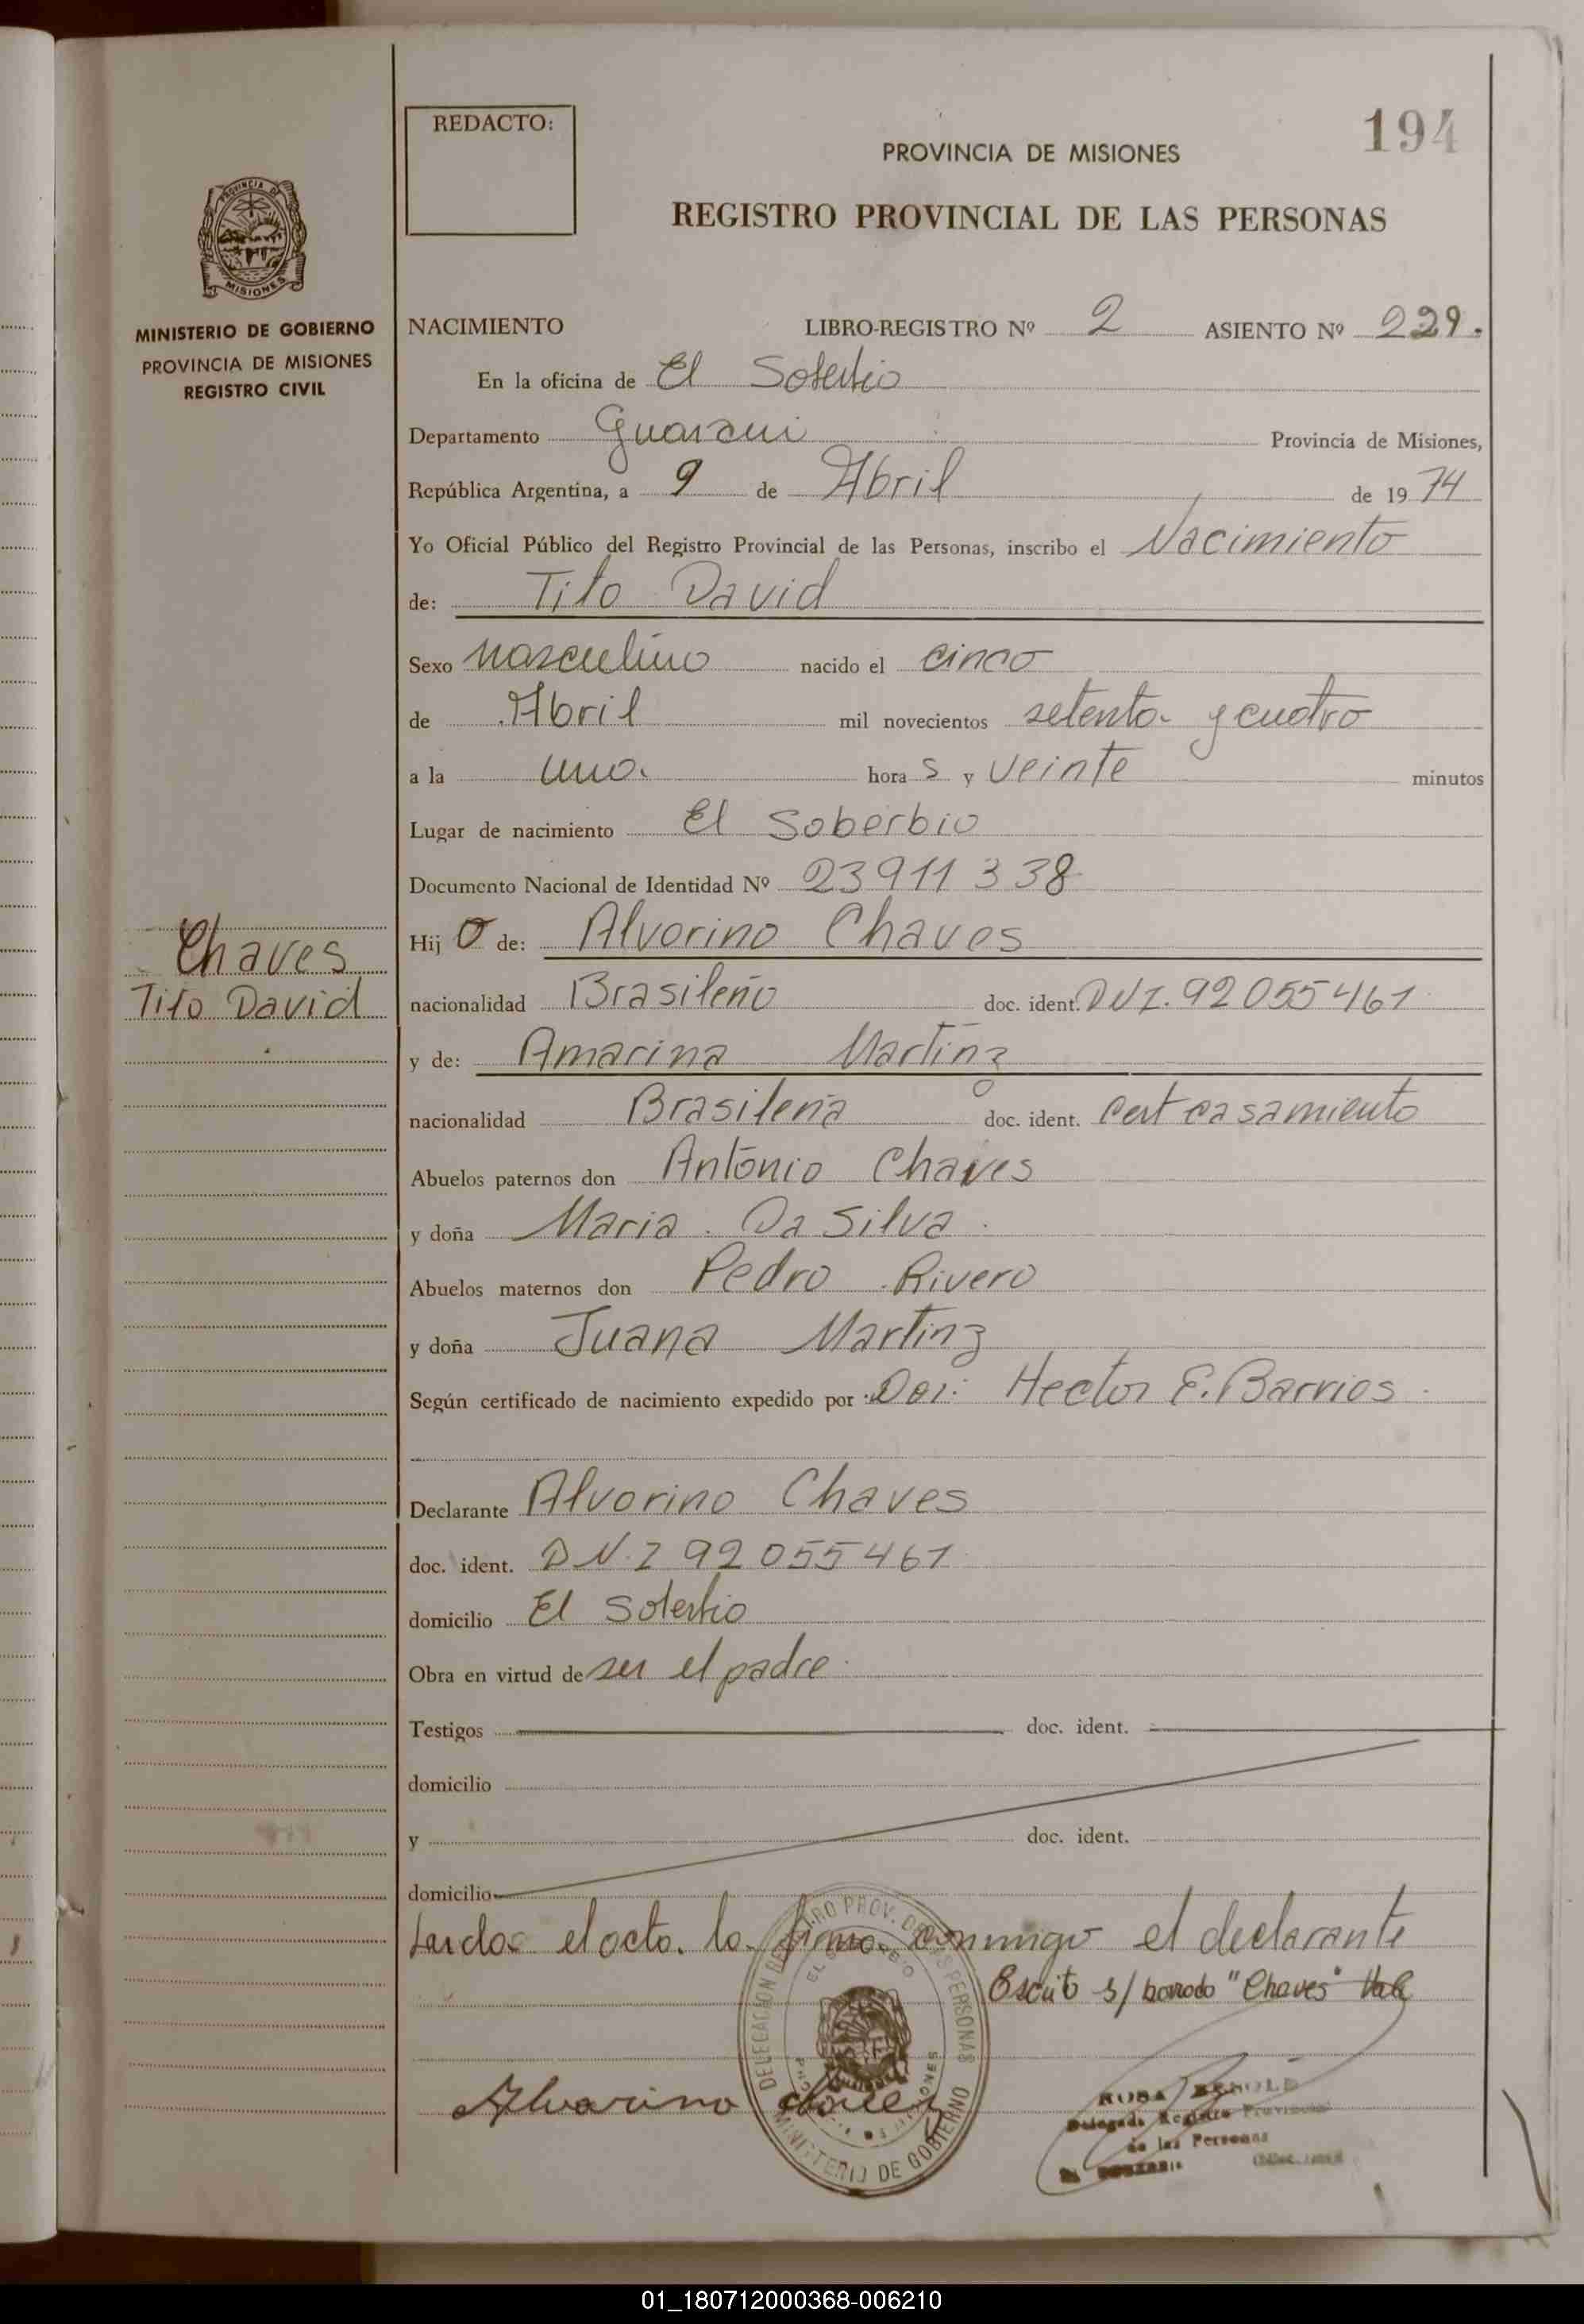 REDACTO:
194
PROVINCIA DE MISIONES
REGISTRO PROVINCIAL DE LAS PERSONAS
PROVINCIA DE
MISIONES
MINISTERIO DE GOBIERNO
PROVINCIA DE MISIONES
REGISTRO CIVIL
NACIMIENTO LIBRO-REGISTRO Nº 2 ASIENTO Nº 229.
En la oficina de El Soberbio
Departamento Guarani Provincia de Misiones,
República Argentina, a 9 de Abril de 19 74
Yo Oficial Público del Registro Provincial de las Personas, inscribo el Nacimiento
de: Tito David
Sexo Masculino nacido el cinco
de Abril mil novecientos setenta y cuatro
a la una hora s y veinte minutos
Lugar de nacimiento El Soberbio
Documento Nacional de Identidad Nº 23911338
Chaves
Tito David
Hij o de: Alvorino Chaves
nacionalidad Brasileño doc. ident. DNI. 92055461
y de: Amarina Martinz
nacionalidad Brasileña doc. ident. Cert casamiento
Abuelos paternos don Antonio Chaves
y doña Maria Da Silva
Abuelos maternos don Pedro Rivero
y doña Juana Martinz
Según certificado de nacimiento expedido por Hector E. Barrios
Declarante Alvorino Chaves
doc. ident. DNI 92055461
domicilio El Soberbio
Obra en virtud de ser el padre
Testigos doc. ident.
domicilio
y doc. ident.
domicilio
Leida el acta la firma conmigo el declarante
Escrito s/ borrado "Chaves" Vale
DELEGACION REGISTRO PROV. DE LAS PERSONAS
EL SOBERBIO
MISIONES
MINISTERIO DE GOBIERNO
Alvarino
ROSA
Delegada Registro Provincial
de las Personas